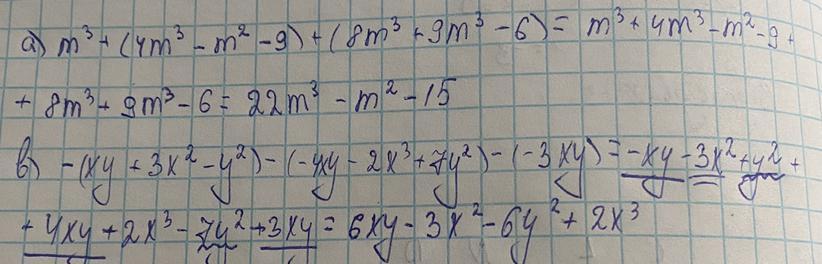 а) m³ + (4m³ - m² - 9) + (8m³ + 9m³ - 6) = m³ + 4m³ - m² - 9 +
+ 8m³ + 9m³ - 6 = 22m³ - m² - 15
в) -(xy + 3x² - y²) - (-4xy - 2x³ + 7y²) - (-3xy) = -xy - 3x² + y² +
+ 4xy + 2x³ - 7y² + 3xy = 6xy - 3x² - 6y² + 2x³